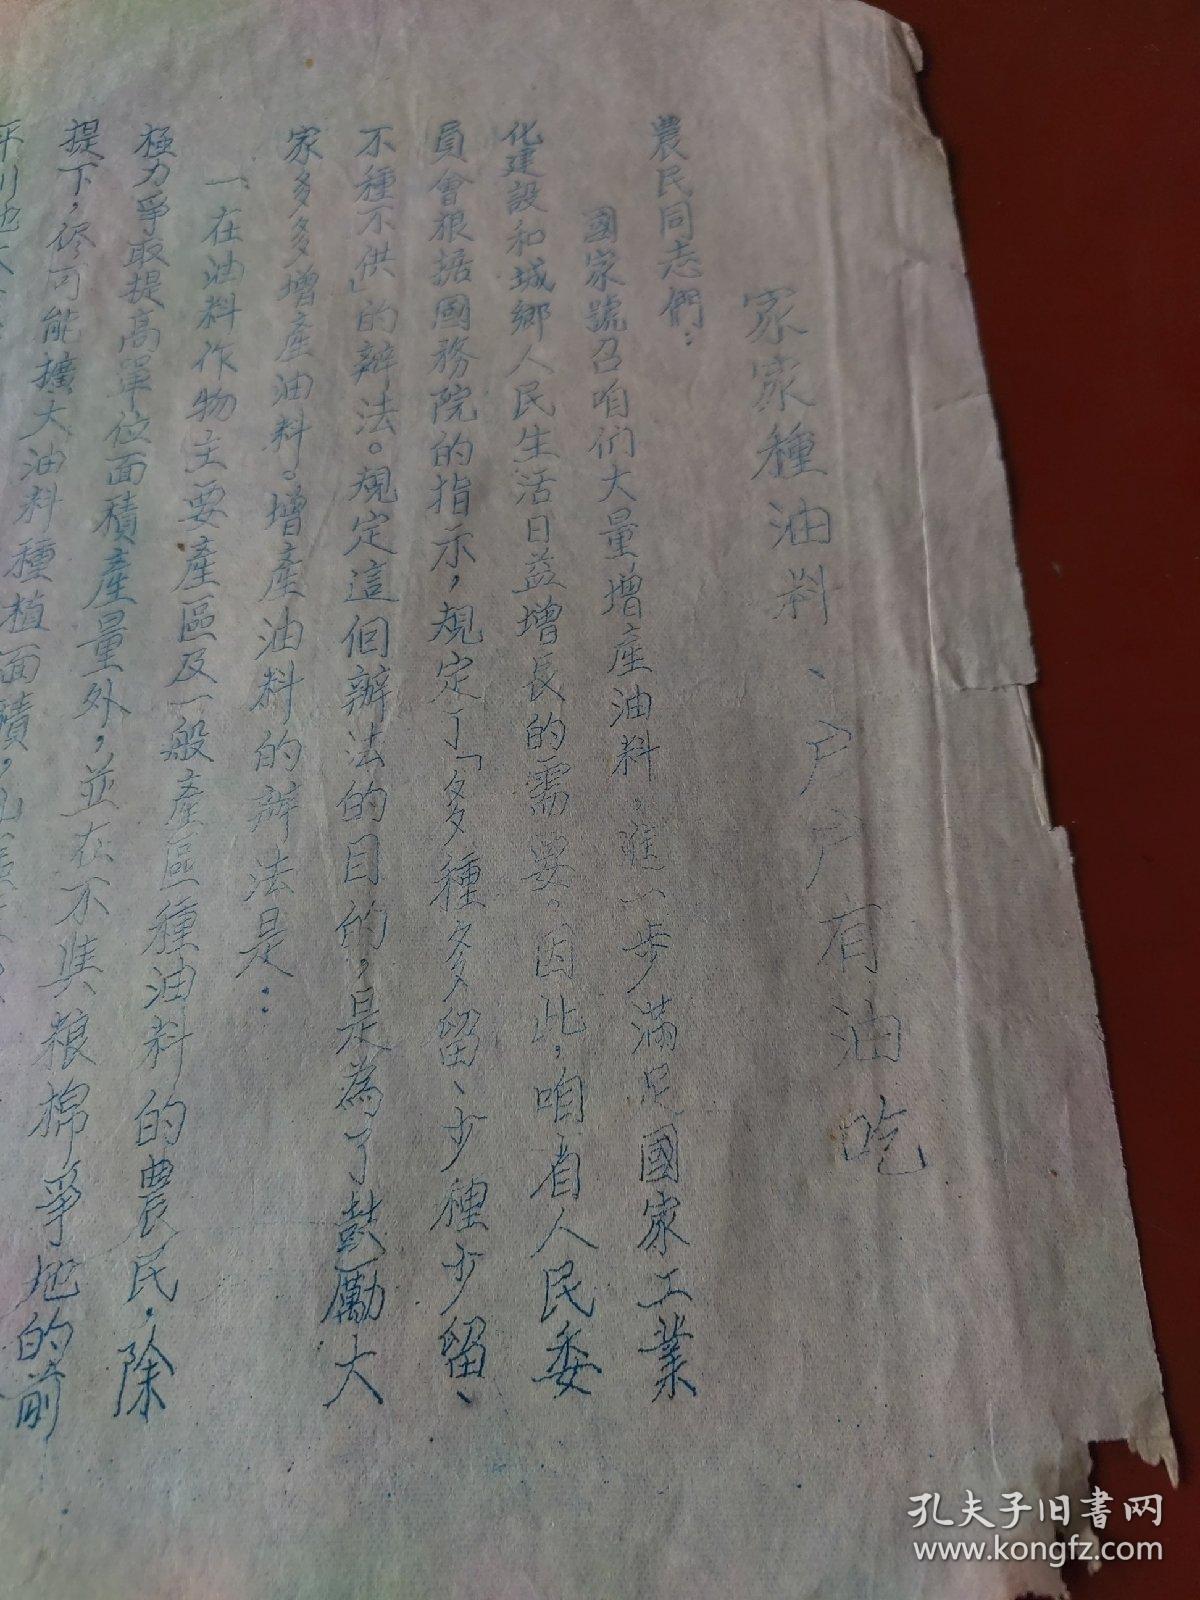 家家種油料、户户有油吃
農民同志們：
國家號召咱们大量增產油料，進一步滿足國家工業
化建設和城鄉人民生活日益增長的需要。因此，咱省人民委
員會根据國務院的指示，規定了「多種多留、少種少留、
不種不供」的辦法。規定這個辦法的目的，是為了鼓勵大
家多多增產油料。增產油料的辦法是：
一在油料作物主要產區及一般產區種油料的農民，除
極力爭取提高單位面積產量外，並在不與粮棉爭地的前
提下，尽可能擴大油料種植面積，
平川地
孔夫子旧书网
www.kongfz.com